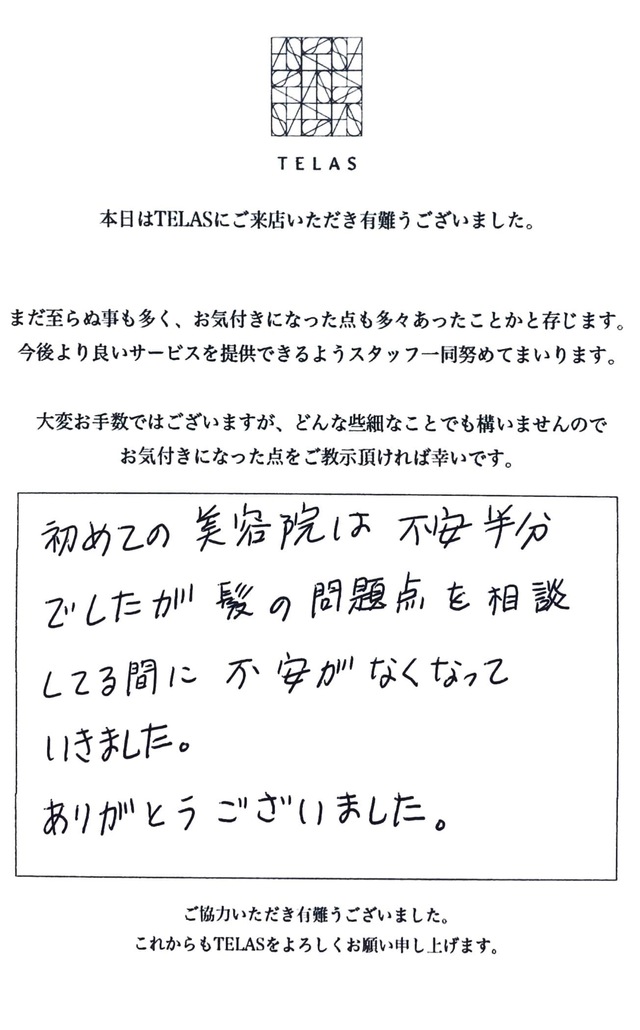 TELAS
本日はTELASにご来店いただき有難うございました。
まだ至らぬ事も多く、お気付きになった点も多々あったことかと存じます。
今後より良いサービスを提供できるようスタッフ一同努めてまいります。
大変お手数ではございますが、どんな些細なことでも構いませんので
お気付きになった点をご教示頂ければ幸いです。
初めての美容院は不安半分
でしたが髪の問題点を相談
してる間に不安がなくなって
いきました。
ありがとうございました。
ご協力いただき有難うございました。
これからもTELASをよろしくお願い申し上げます。